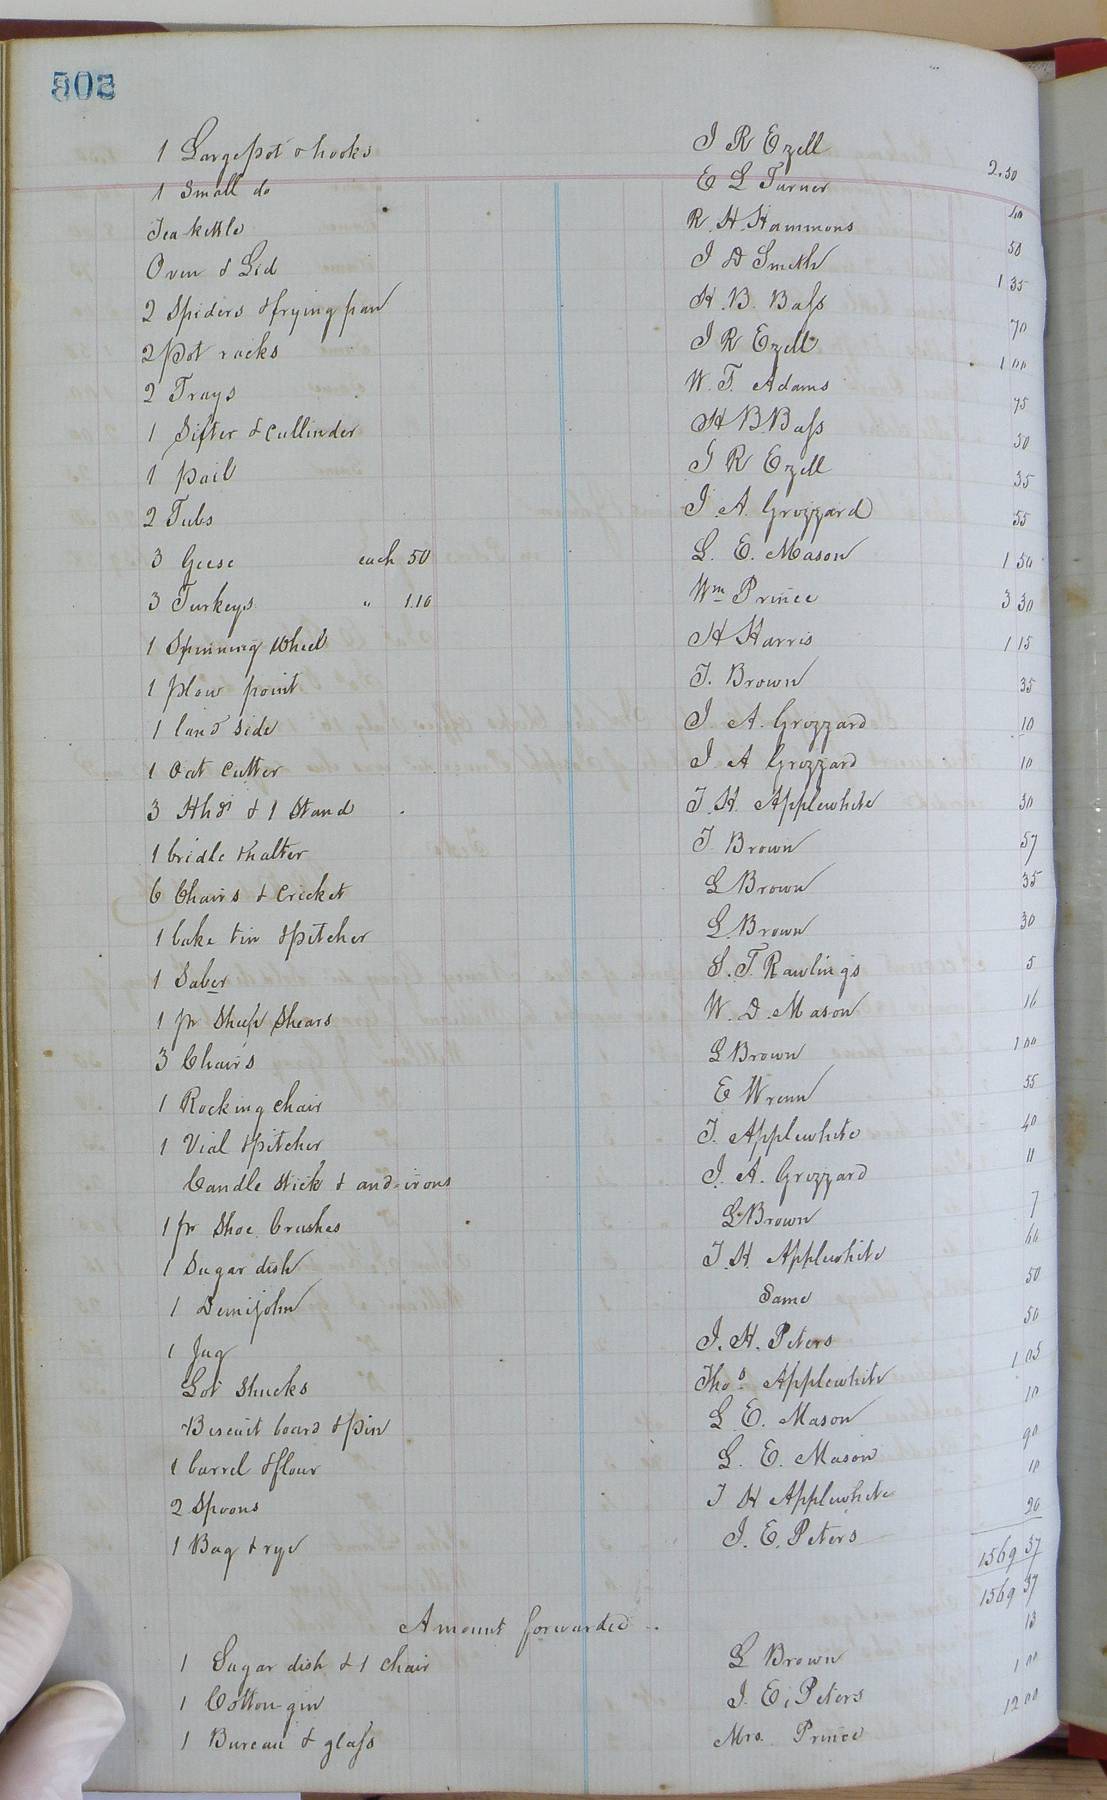 502
1 Large pot & hooks J R Ezell 2.50
1 Small do E L Turner 50
Tea kettle R. H. Hammons 50
Oven & Lid J D Smith 1 35
2 Spiders & frying pan H. B. Bass 70
2 Pot racks J R Ezell 1 00
2 Trays W. T. Adams 75
1 Sifter & Cullinder H B Bass 50
1 Pail J R Ezell 35
2 Tubs J. A. Grizzard 55
3 Geese each 50 L. E. Mason 1 50
3 Turkeys " 1.10 Wm Prince 3 30
1 Spinning Wheel H Harris 1 15
1 Plow point T. Brown 35
1 land side J A. Grizzard 10
1 Oat Cutter J. A Grizzard 10
3 Hhds & 1 Stand T. H. Applewhite 30
1 bridle & halter T Brown 57
6 Chairs & Cricket L Brown 35
1 Cake tin & Pitcher L Brown 30
1 Saber S. T. Rawlings 5
1 pr Sheep Shears W. D. Mason 16
3 Chairs L Brown 1 00
1 Rocking Chair E Wrenn 55
1 Vial & Pitcher T. Applewhite 40
Candle Stick & and-irons J. A. Grizzard 11
1 pr Shoe brushes L Brown 7
1 Sugar dish T. H. Applewhite
1 Demijohn Same 50
1 Jug J. H. Peters 50
Lot Shucks Thos. Applewhite 1 05
Biscuit board & pin L E. Mason 10
1 barrel & flour L. E. Mason 90
2 Spoons T H Applewhite 10
1 Bag & rye J. E. Peters 20
1569 37
Amount forwarded 1569 37
1 Sugar dish & 1 chair L Brown 13
1 Cotton gin J. E. Peters 1 00
1 Bureau & glass Mrs. Prince 12 00